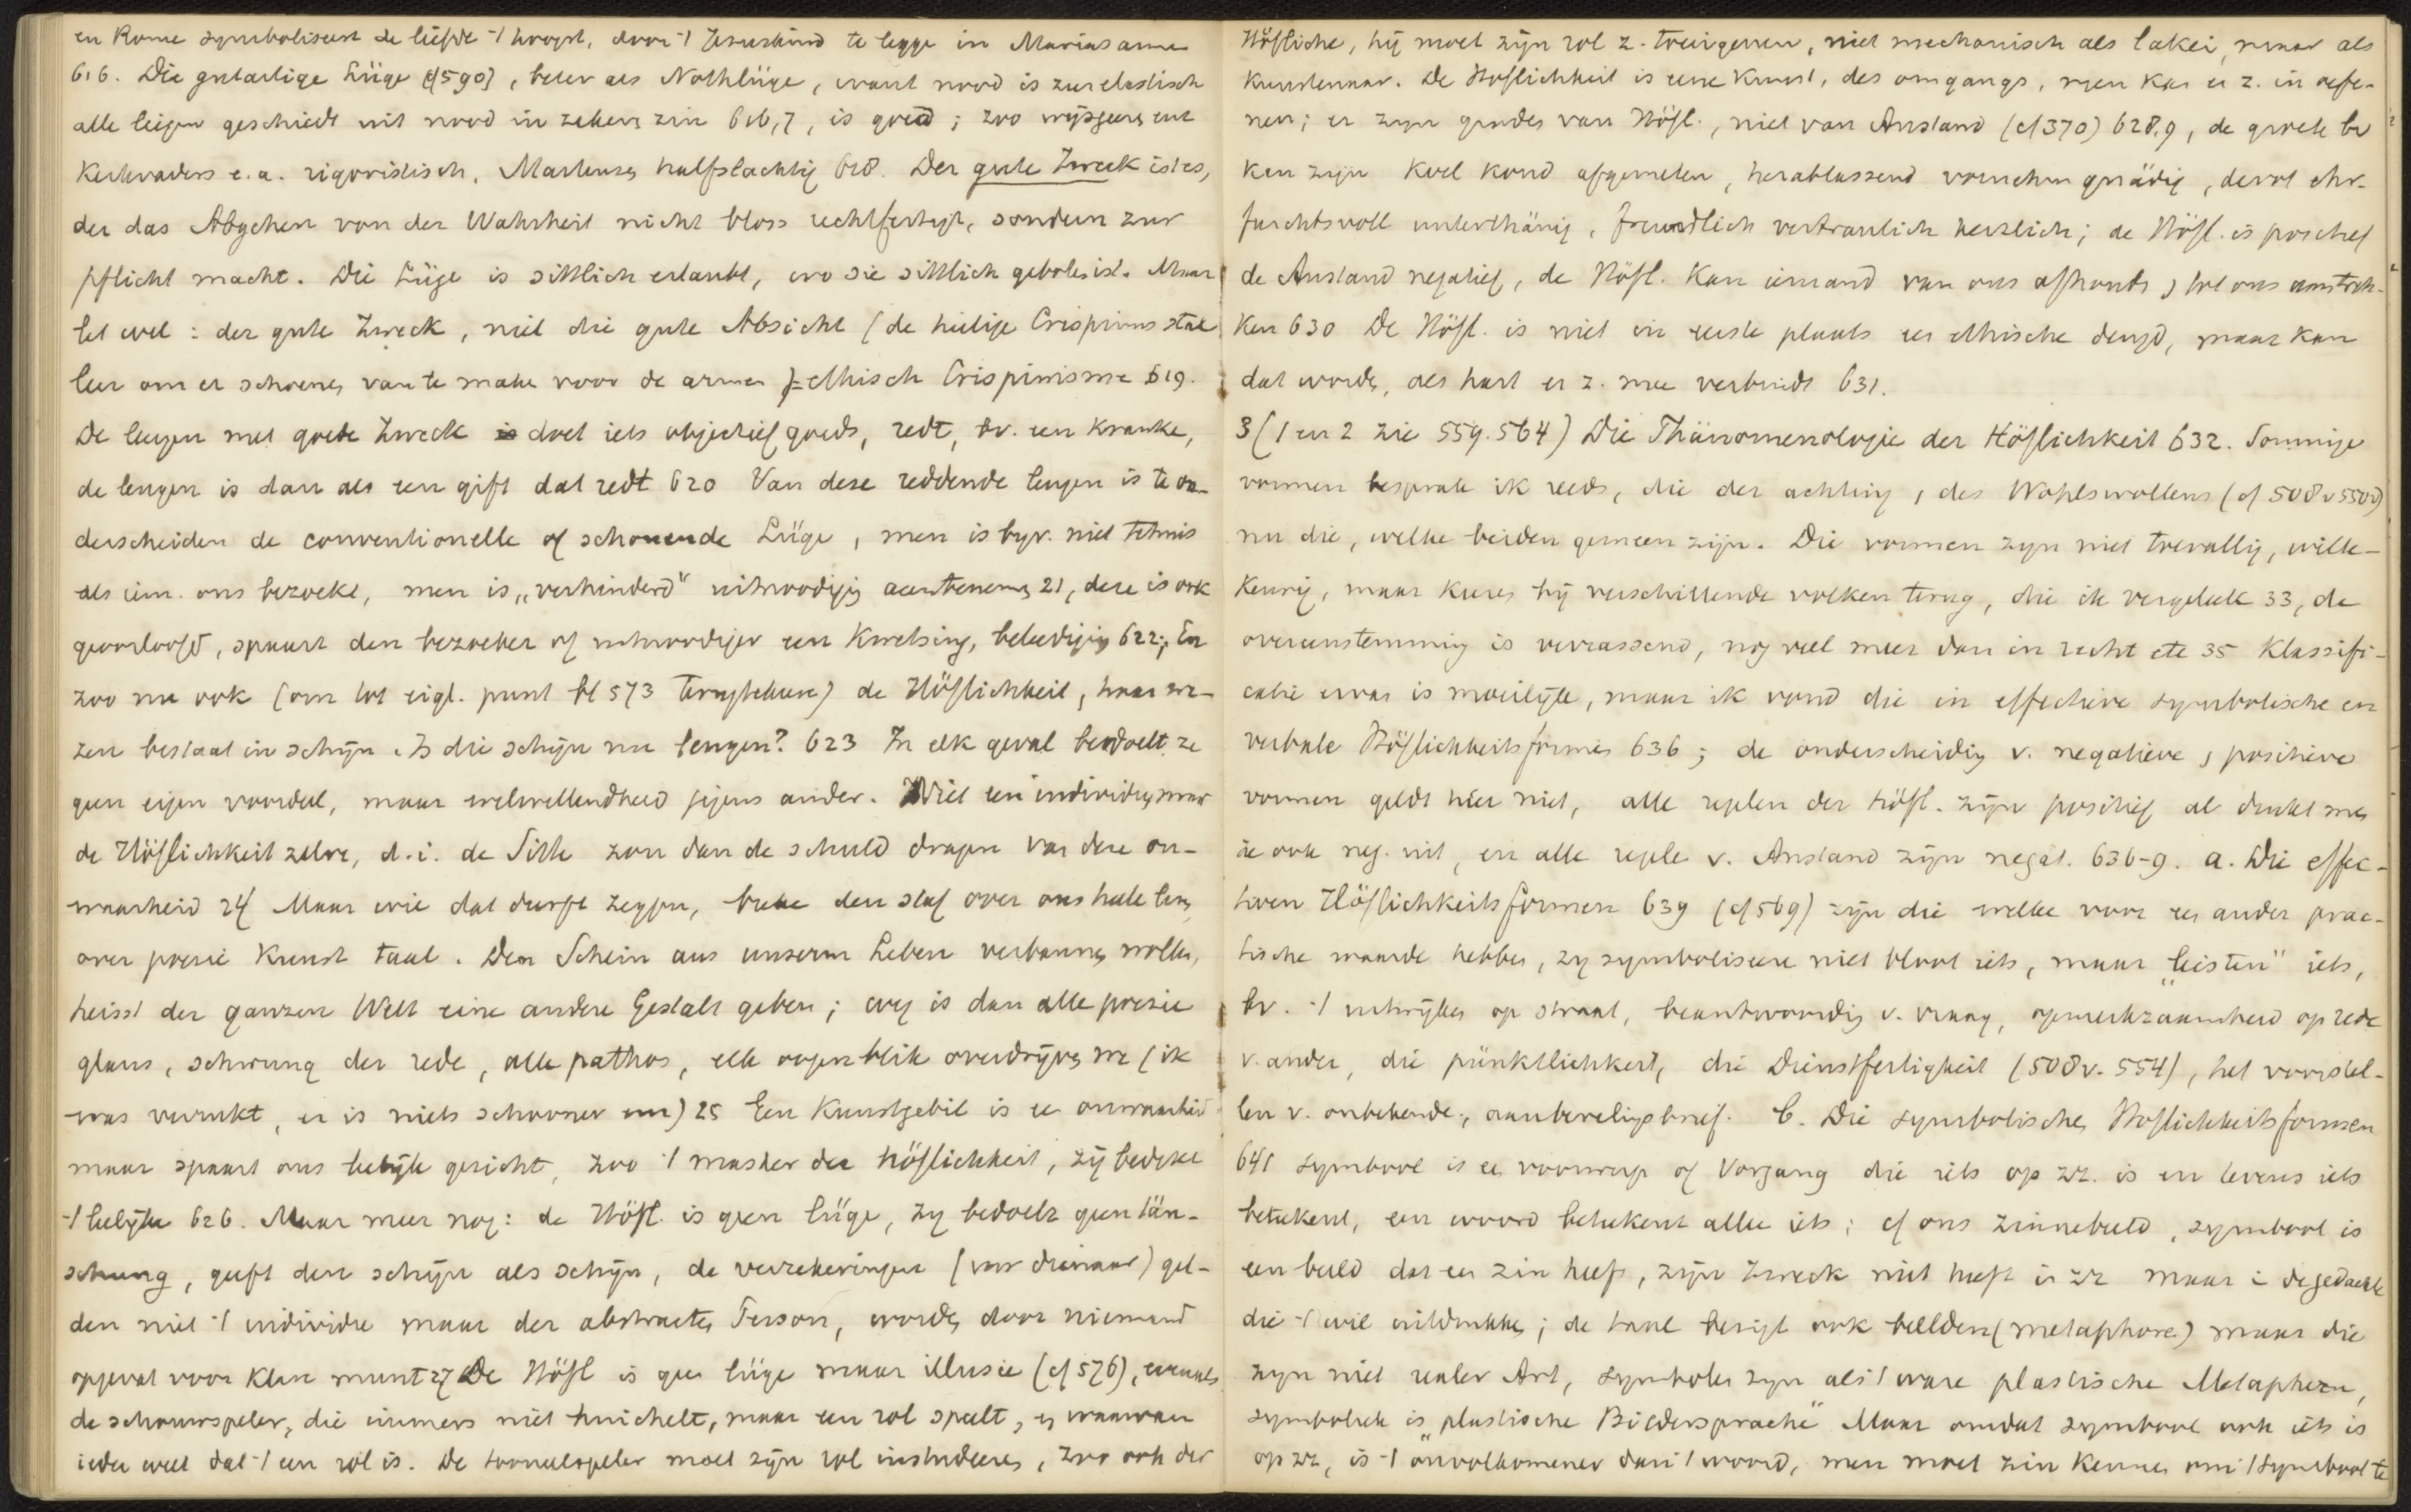 en Rome symboliseert de liefde 't hoogst, door 't Jezuskind te legge in Marias arme
616. Die gutartige Lüge (cf 590), beter als Nothlüge, want nood is zeer elastisch
alle leugen geschiedt uit nood in zekere zin 616,7, is goed; zoo wijsgeeren
Kerkvaders e.a. rigoristisch, Martensen halfslachtig 618. Der gute Zweck ist es,
der das Abgehen von der Wahrheit nicht bloss rechtfertigt, sondern zur
pflicht macht. Die Lüge is sittlich erlaubt, wo sie sittlich geboten ist. Maar
let wel: der gute Zweck, niet die gute Absicht (de heilige Crispinus stal
leer om er schoenen van te make voor de armen) = ethisch Crispinisme 619.
De leugen met goede Zweck doet iets objectief goeds, redt, bv. een kranke,
de leugen is dan als een gift dat redt 620 Van deze reddende leugen is te on-
derscheiden de conventionelle of schonende Lüge, men is byv. niet tehuis
als iem. ons bezoekt, men is „verhinderd" uitnoodiging aantenemen 21, deze is ook
geoorloofd, spaart den bezoeker of uitnoodiger een kwetsing, beleediging 622; En
zoo nu ook (om tot eigl. punt bl 573 terugtekeeren) de Höflichkeit, haar we-
zen bestaat in schijn. Is die schijn nu leugen? 623 In elk geval bedoelt ze
geen eigen voordeel, maar welwillendheid jegens ander. Niet een individu, maar
de Höflichkeit zelve, d.i. de Sitte zou dan de schuld dragen van deze on-
waarheid 24 Maar wie dat durft zeggen, breke den staf over ons heele leven,
over poezie kunst taal. Den Schein aus unserm Leben verbannen wollen,
heisst der ganzen Welt eine andere Gestalt geben; weg is dan alle poezie
glans, schwung der rede, alle pathos, elk oogenblik overdrijven we (ik
was verrukt, er is niets schooner enz) 25 Een kunstgebit is ee onwaarheid
maar spaart ons leelijk gezicht, zoo 't masker der höflichkeit, zij bedekt
't leelijke 626. Maar meer nog: de Höfl. is geen lüge, zy bedoelt geen täu-
schung, geeft den schijn als schijn, de verzekeringen (uw dienaar) gel-
den niet 't individu maar der abstracten Person, worden door niemand
opgevat voor klare munt 27 De Höfl is gee lüge maar illusie (cf 576), evenals
de schouwspeler, die immers niet huichelt, maar een rol speelt, en waarvan
ieder weet dat 't een rol is. De tooneelspeler moet zijn rol instudeeren, zoo ook der
Höfliche, hij moet zijn rol z. toeeigenen, niet mechanisch als lakei, maar als
kunstenaar. De Höflichkeit is eene kunst, des omgangs, men kan er z. in oefe-
nen; er zijn grades van Höfl., niet van Anstand (cf 370) 628,9, de groete bv
kan zijn koel koud afgemeten, herablassend vornehm gnädig, devot ehr-
furchtsvoll unterthänig, freundlich vertraulich herzlich; de Höfl. is positief
de Anstand negatief, de Höfl. kan iemand van ons afhouden, tot ons aantrek-
ken 630 De Höfl. is niet in eerste plaats ee ethische deugd, maar kan
dat worden, als hart er z. mee verbindt 631.
3 (1 en 2 zie 559.564) Die Phänomenologie der Höflichkeit 632. Sommige
vormen besprak ik reeds, die der achting, des Wohlwollens (cf 508v 550v)
nu die, welke beiden gemeen zijn. Die vormen zyn niet toevallig, wille-
keurig, maar keeren bij verschillende volken terug, die ik vergeleek 33, de
overeenstemming is verrassend, nog veel meer dan in recht etc 35 Klassifi-
catie ervan is moeilijk, maar ik vond die in effectieve symbolische en
verbale Höflichkeitsformen 636; de onderscheiding v. negatieve, positieve
vormen geldt hier niet, alle regelen der höfl. zijn positief al drukt men
ze ook neg. uit, en alle regele v. Anstand zijn negat. 636-9. a. Die effec-
tiven Höflichkeitsformen 639 (cf 569) zijn die welke voor ee ander prac-
tische waarde hebben, zy symboliseere niet bloot iets, maar „leisten" iets,
bv. 't uitwijken op straat, beantwoording v. vraag, opmerkzaamheid op rede
v. ander, die pünktlichkeit, die Dienstfertigkeit (508v. 554), het voorstel-
len v. onbekende, aanbevelingsbrief. b. Die symbolischen Höflichkeitsformen
641 symbool is ee voorwerp of Vorgang die iets op zz. is en tevens iets
beteekent, een woord beteekent alleen iets; cf ons zinnebeeld, symbool is
een beeld dat een zin heeft, zijn Zweck niet heeft in zz maar in de gedachte
die 't wil uitdrukke; de taal bezigt ook beelden (metaphore) maar die
zyn niet realer Art, symbolen zyn als 't ware plastische Metaphern,
symboliek is „plastische Bildersprache" Maar omdat symbool ook iets is
op zz, is 't onvolkomener dan 't woord, men moet zin kennen om 't symbool te